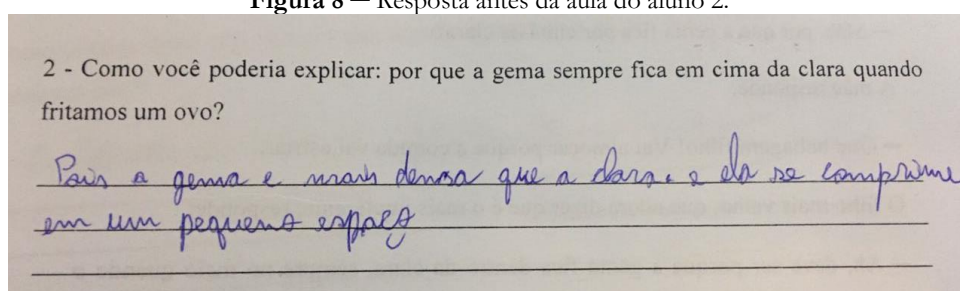 Figura 8 — Resposta antes da aula do aluno 2.
2 - Como você poderia explicar: por que a gema sempre fica em cima da clara quando
fritamos um ovo?
Pois a gema e mais densa que a clara. e ela se comprime
em um pequeno espaço